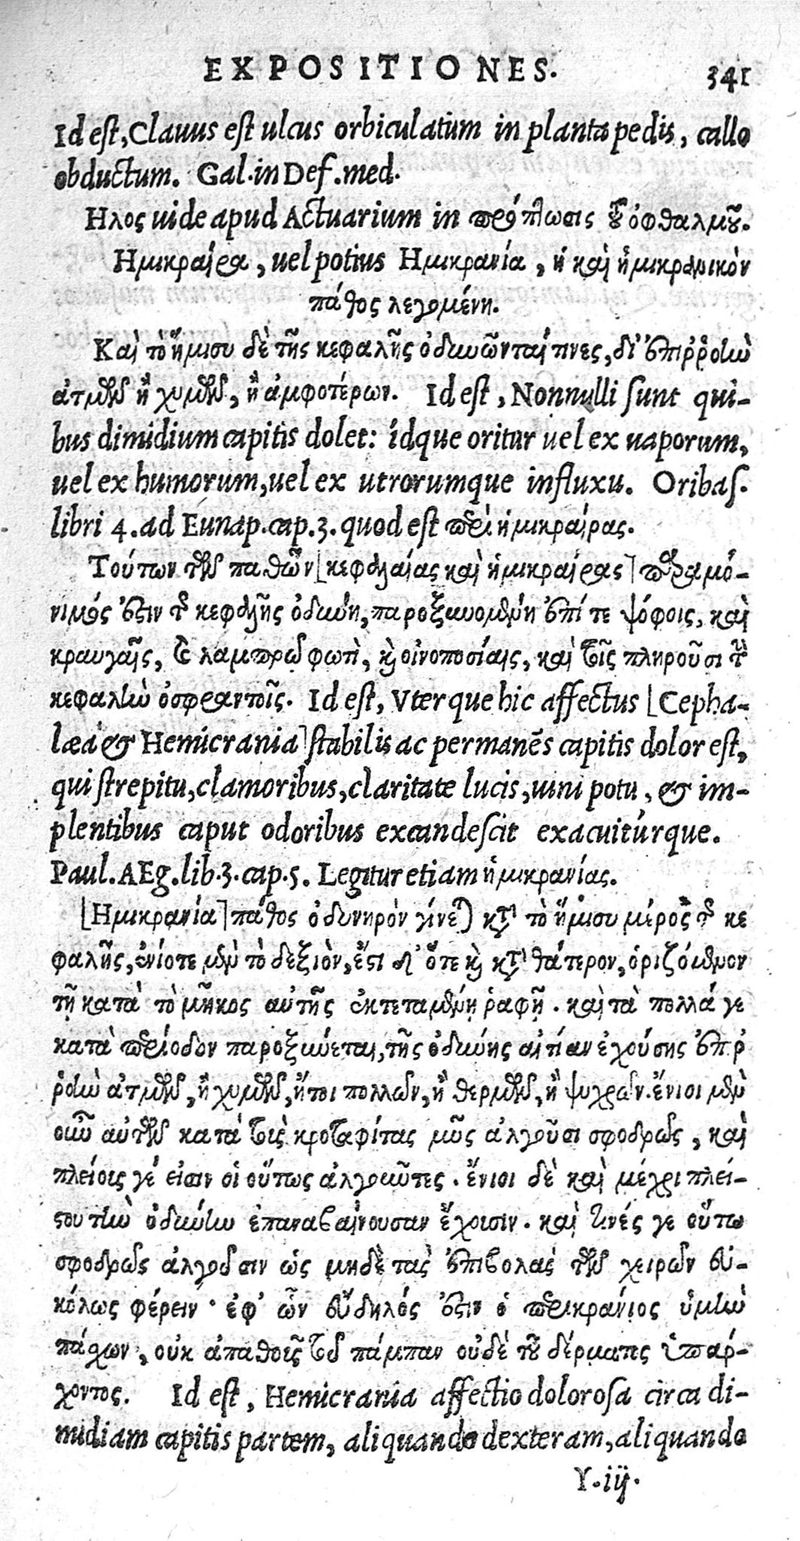 EXPOSITIONES. 341
Id est, Clauus est ulcus orbiculatum in planta pedis, callo
obductum. Gal. in Def. med.
Ηλος uide apud Actuarium in πρόπτωσις τ̃ οφθαλμοῦ.
Ημικραίρα, uel potius Ημικρανία, ἡ καὶ ἡμικρανικὸν
πάθος λεγομένη.
Καὶ τὸ ἥμισυ δὲ τῆς κεφαλῆς ὀδυνῶνταί τινες, δι' ἐπιῤῥοίω
ἀτμῶν ἢ χυμῶν, ἢ ἀμφοτέρων. Id est, Nonnulli sunt qui-
bus dimidium capitis dolet: idque oritur uel ex uaporum,
uel ex humorum, uel ex utrorumque influxu. Oribas.
libri 4. ad Eunap. cap. 3. quod est περὶ ἡμικραίρας.
Τούτων τῶν παθῶν [κεφαλαίας καὶ ἡμικραίρας] παραμό-
νιμός ἐστιν ἡ κεφαλῆς ὀδύνη, παροξυνομένη ἐπί τε ψόφοις, καὶ
κραυγαῖς, καὶ λαμπρῷ φωτὶ, καὶ οἰνοποσίαις, καὶ τοῖς πληροῦσι τὴν
κεφαλὴν ὀσφραντοῖς. Id est, Vterque hic affectus [Cepha-
læa & Hemicrania] stabilis ac permanēs capitis dolor est,
qui strepitu, clamoribus, claritate lucis, uini potu, & im-
plentibus caput odoribus excandescit exacuitúrque.
Paul. AEg. lib. 3. cap. 5. Legitur etiam ἡμικρανίας.
[Ημικρανία] πάθος ὀδυνηρὸν γίνεται κατὰ τὸ ἥμισυ μέρος τῆς κε
φαλῆς, ἐνίοτε μὲν τὸ δεξιὸν, ἔστι δ' ὅτε καὶ κατὰ θάτερον, ὁριζόμενον
τῇ κατὰ τὸ μῆκος αὐτῆς ἐκτεταμένῃ ῥαφῇ. καὶ τὰ πολλά γε
κατὰ περίοδον παροξύνεται, τῆς ὀδύνης αἰτίαν ἐχούσης ἐπιῤ
ῥοὴν ἀτμῶν, ἢ χυμῶν, ἤτοι πολλῶν, ἢ θερμῶν, ἢ ψυχρῶν. ἔνιοι μὲν
οὖν αὐτῶν κατὰ τοὺς κροταφίτας μῦς ἀλγοῦσι σφοδρῶς, καὶ
πλείους γέ εἰσιν οἱ οὕτως ἀλγοῦντες. ἔνιοι δὲ καὶ μέχρι πλεί-
στου τὴν ὀδύνην ἐπαναβαίνουσαν ἔχουσιν. καὶ τινές γε οὕτω
σφοδρῶς ἀλγοῦσιν ὡς μηδὲ τὰς ἐπιβολὰς τῶν χειρῶν εὐ-
κόλως φέρειν· ἐφ' ὧν εὔδηλός ἐστιν ὁ περικράνιος ὑμὴν
πάσχων, οὐκ ἀπαθοῦς τοῦ πάμπαν οὐδὲ τοῦ δέρματος ὑπάρ-
χοντος. Id est, Hemicrania affectio dolorosa circa di-
midiam capitis partem, aliquando dexteram, aliquando
Y. iij.